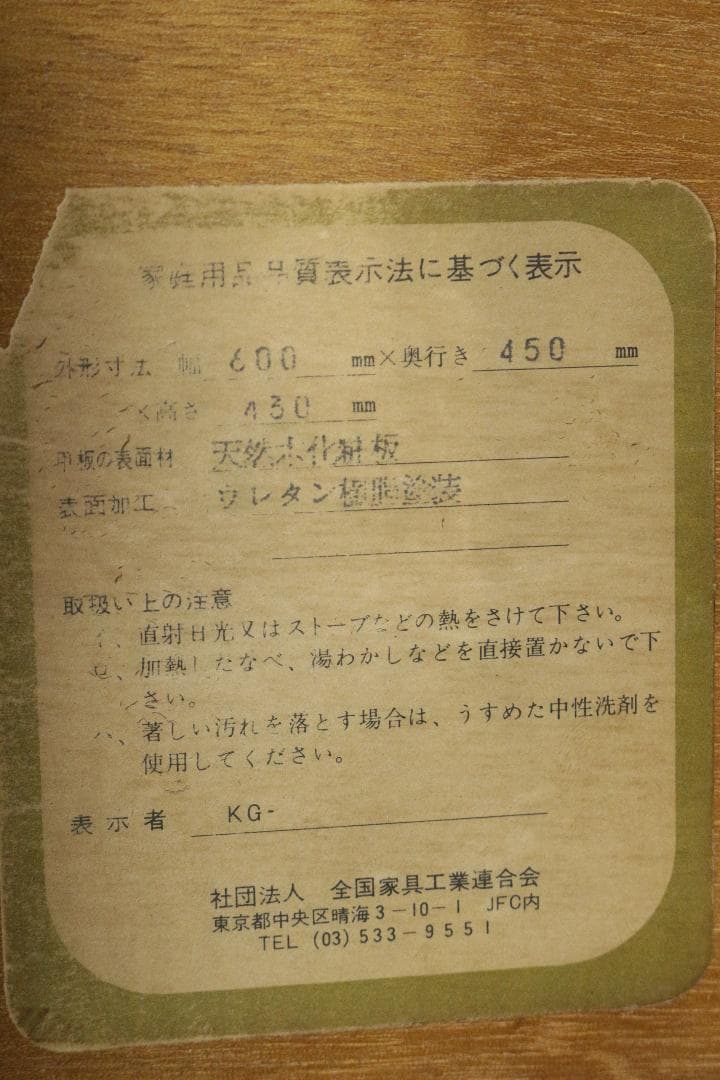 家庭用品品質表示法に基づく表示
外形寸法 幅 600 mm×奥行き 450 mm
×高さ 430 mm
甲板の表面材 天然木化粧板
表面加工 ウレタン樹脂塗装
取扱い上の注意
イ、直射日光又はストーブなどの熱をさけて下さい。
ロ、加熱したなべ、湯わかしなどを直接置かないで下
さい。
ハ、著しい汚れを落とす場合は、うすめた中性洗剤を
使用してください。
表示者 KG-
社団法人 全国家具工業連合会
東京都中央区晴海3-10-1 JFC内
TEL (03) 533-9551